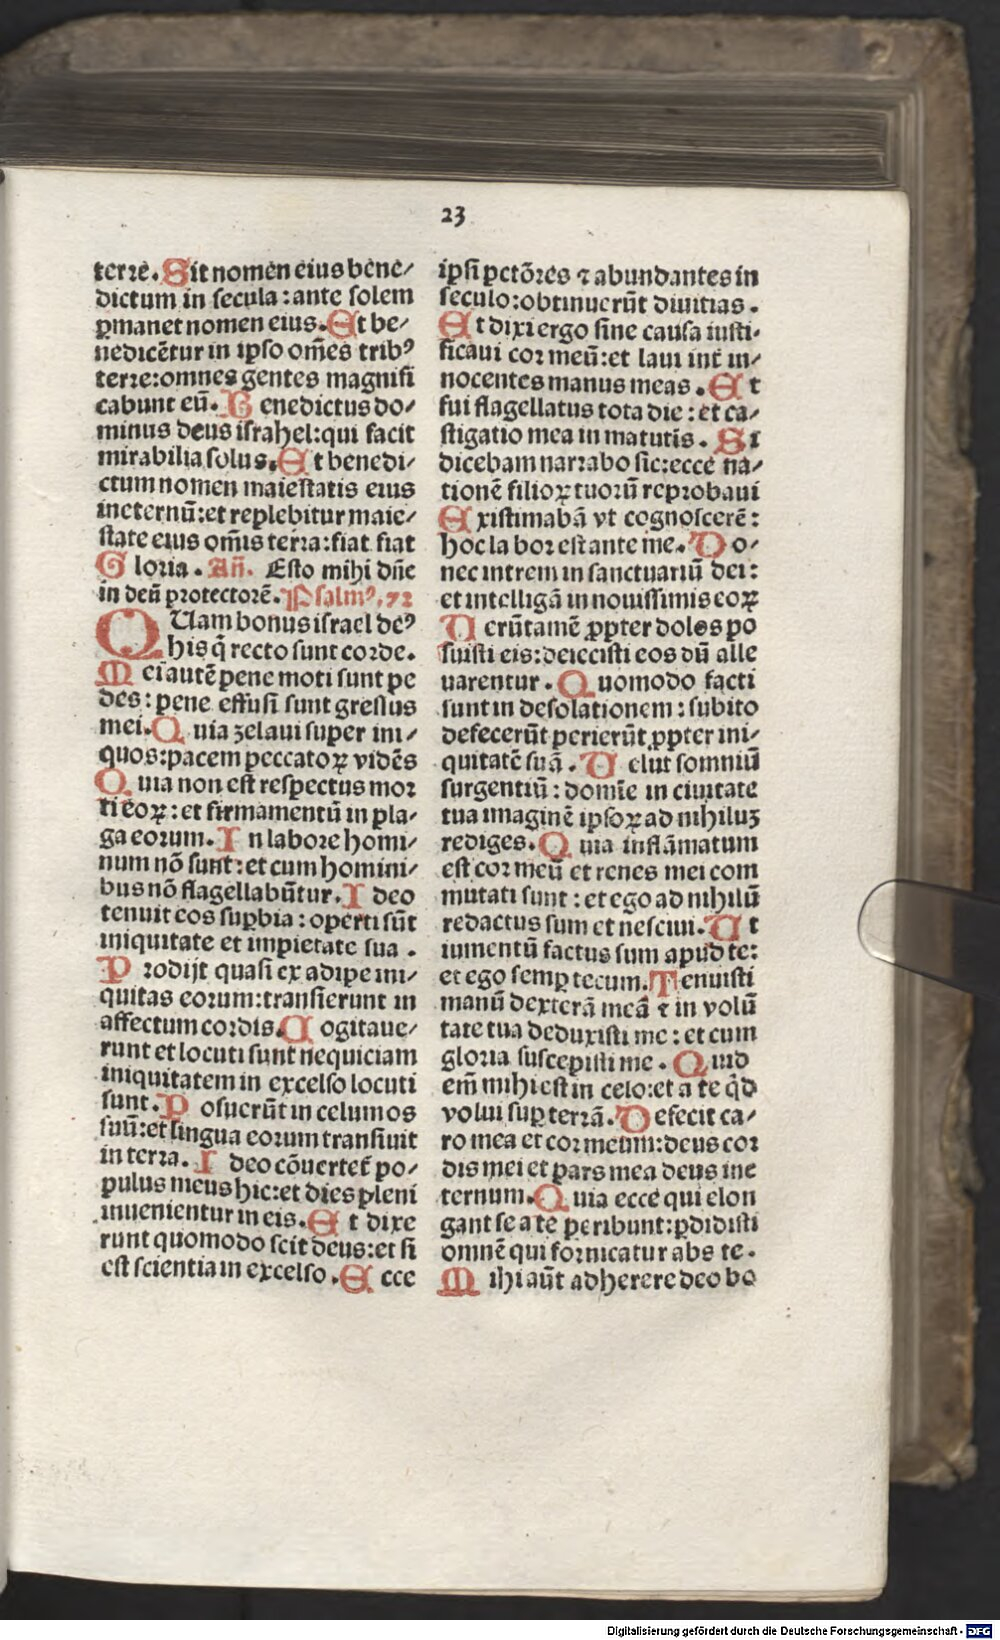 23
terre. Sit nomen eius bene/
dictum in secula: ante solem
ꝑmanet nomen eius. Et be/
nedicẽtur in ipso oms̃ tribꝰ
terre: omnes gentes magnifi
cabunt eũ. Benedictus do/
minus deus israhel: qui facit
mirabilia solus. Et benedi/
ctum nomen maiestatis eius
ineternũ: et replebitur maie/
state eius om̃is terra: fiat fiat
Gloria. Añ. Esto mihi dñe
in deũ protectorẽ. Psalmꝰ. 72
QUam bonus israel deꝰ
his q̃ recto sunt corde.
Mei autẽ pene moti sunt pe
des: pene effusi sunt gressus
mei. Quia zelaui super ini/
quos: pacem peccatoꝝ vidẽs
Quia non est respectus mor
ti eoꝝ: et firmamentũ in pla/
ga eorum. In labore homi/
num nõ sunt: et cum homini/
bus nõ flagellabũtur. Ideo
tenuit eos suꝑbia: operti sũt
iniquitate et impietate sua.
Prodijt quasi ex adipe ini/
quitas eorum: transierunt in
affectum cordis. Cogitaue/
runt et locuti sunt nequiciam
iniquitatem in excelso locuti
sunt. Posuerũt in celum os
suũ: et lingua eorum transiuit
in terra. Ideo cõuertet̃ po/
pulus meus hic: et dies pleni
inuenientur in eis. Et dixe
runt quomodo scit deus: et si
est scientia in excelso. Ecce
ipsi pctõres ⁊ abundantes in
seculo: obtinuerũt diuitias.
Et dixi ergo sine causa iusti/
ficaui cor meũ: et laui int̃ in/
nocentes manus meas. Et
fui flagellatus tota die: et ca/
stigatio mea in matutis̃. Si
dicebam narrabo sic: ecce na/
tionẽ filioꝝ tuorũ reprobaui
Existimabã vt cognoscerẽ:
hoc labor est ante me. Do/
nec intrem in sanctuariũ dei:
et intelligã in nouissimis eoꝝ
Uerũtamẽ ꝓpter dolos po
suisti eis: deiecisti eos dũ alle
uarentur. Quomodo facti
sunt in desolationem: subito
defecerũt perierũt ꝓpter ini/
quitatẽ suã. Uelut somniũ
surgentiũ: domie̅ in ciuitate
tua imaginẽ ipsoꝝ ad nihiluꝫ
rediges. Quia inflãmatum
est cor meũ et renes mei com
mutati sunt: et ego ad nihilũ
redactus sum et nesciui. Ut
iumentũ factus sum apud te:
et ego semꝑ tecum. Tenuisti
manũ dexterã meã ⁊ in volũ
tate tua deduxisti me: et cum
gloria suscepisti me. Quid
em̃ mihi est in celo: et a te q̃d
volui suꝑ terrã. Defecit ca/
ro mea et cor meum: deus cor
dis mei et pars mea deus ine
ternum. Quia ecce qui elon
gant se a te peribunt: ꝑdidisti
omnẽ qui fornicatur abs te.
Mihi aũt adherere deo bo
Digitalisierung gefördert durch die Deutsche Forschungsgemeinschaft - DFG